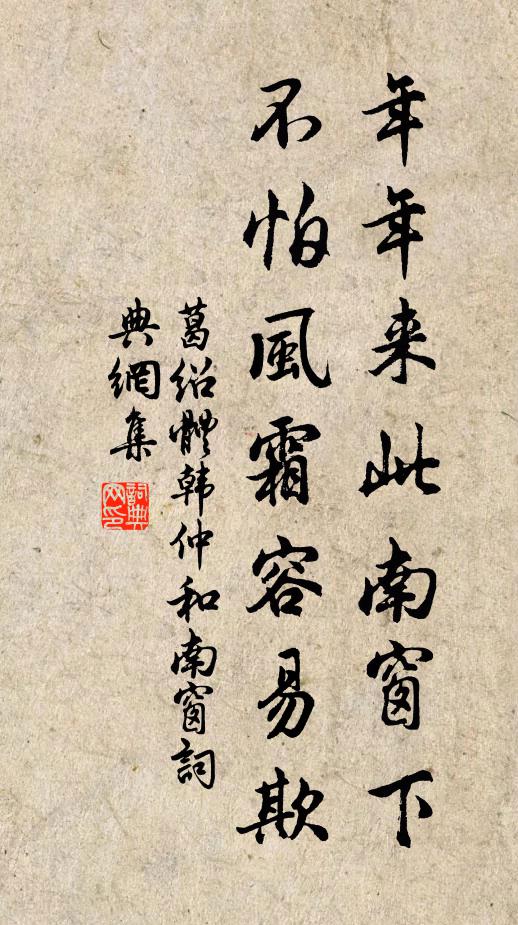 年年来此南窗下
不怕風霜容易欺
葛紹體韩仲和南窗詞
典網集
詞典网印